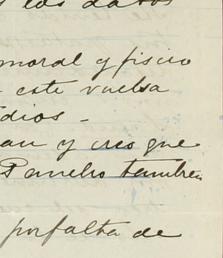 los datos
moral y fisico
este vuelva
dios -
an y creo que
Pancho tambien
por falta de